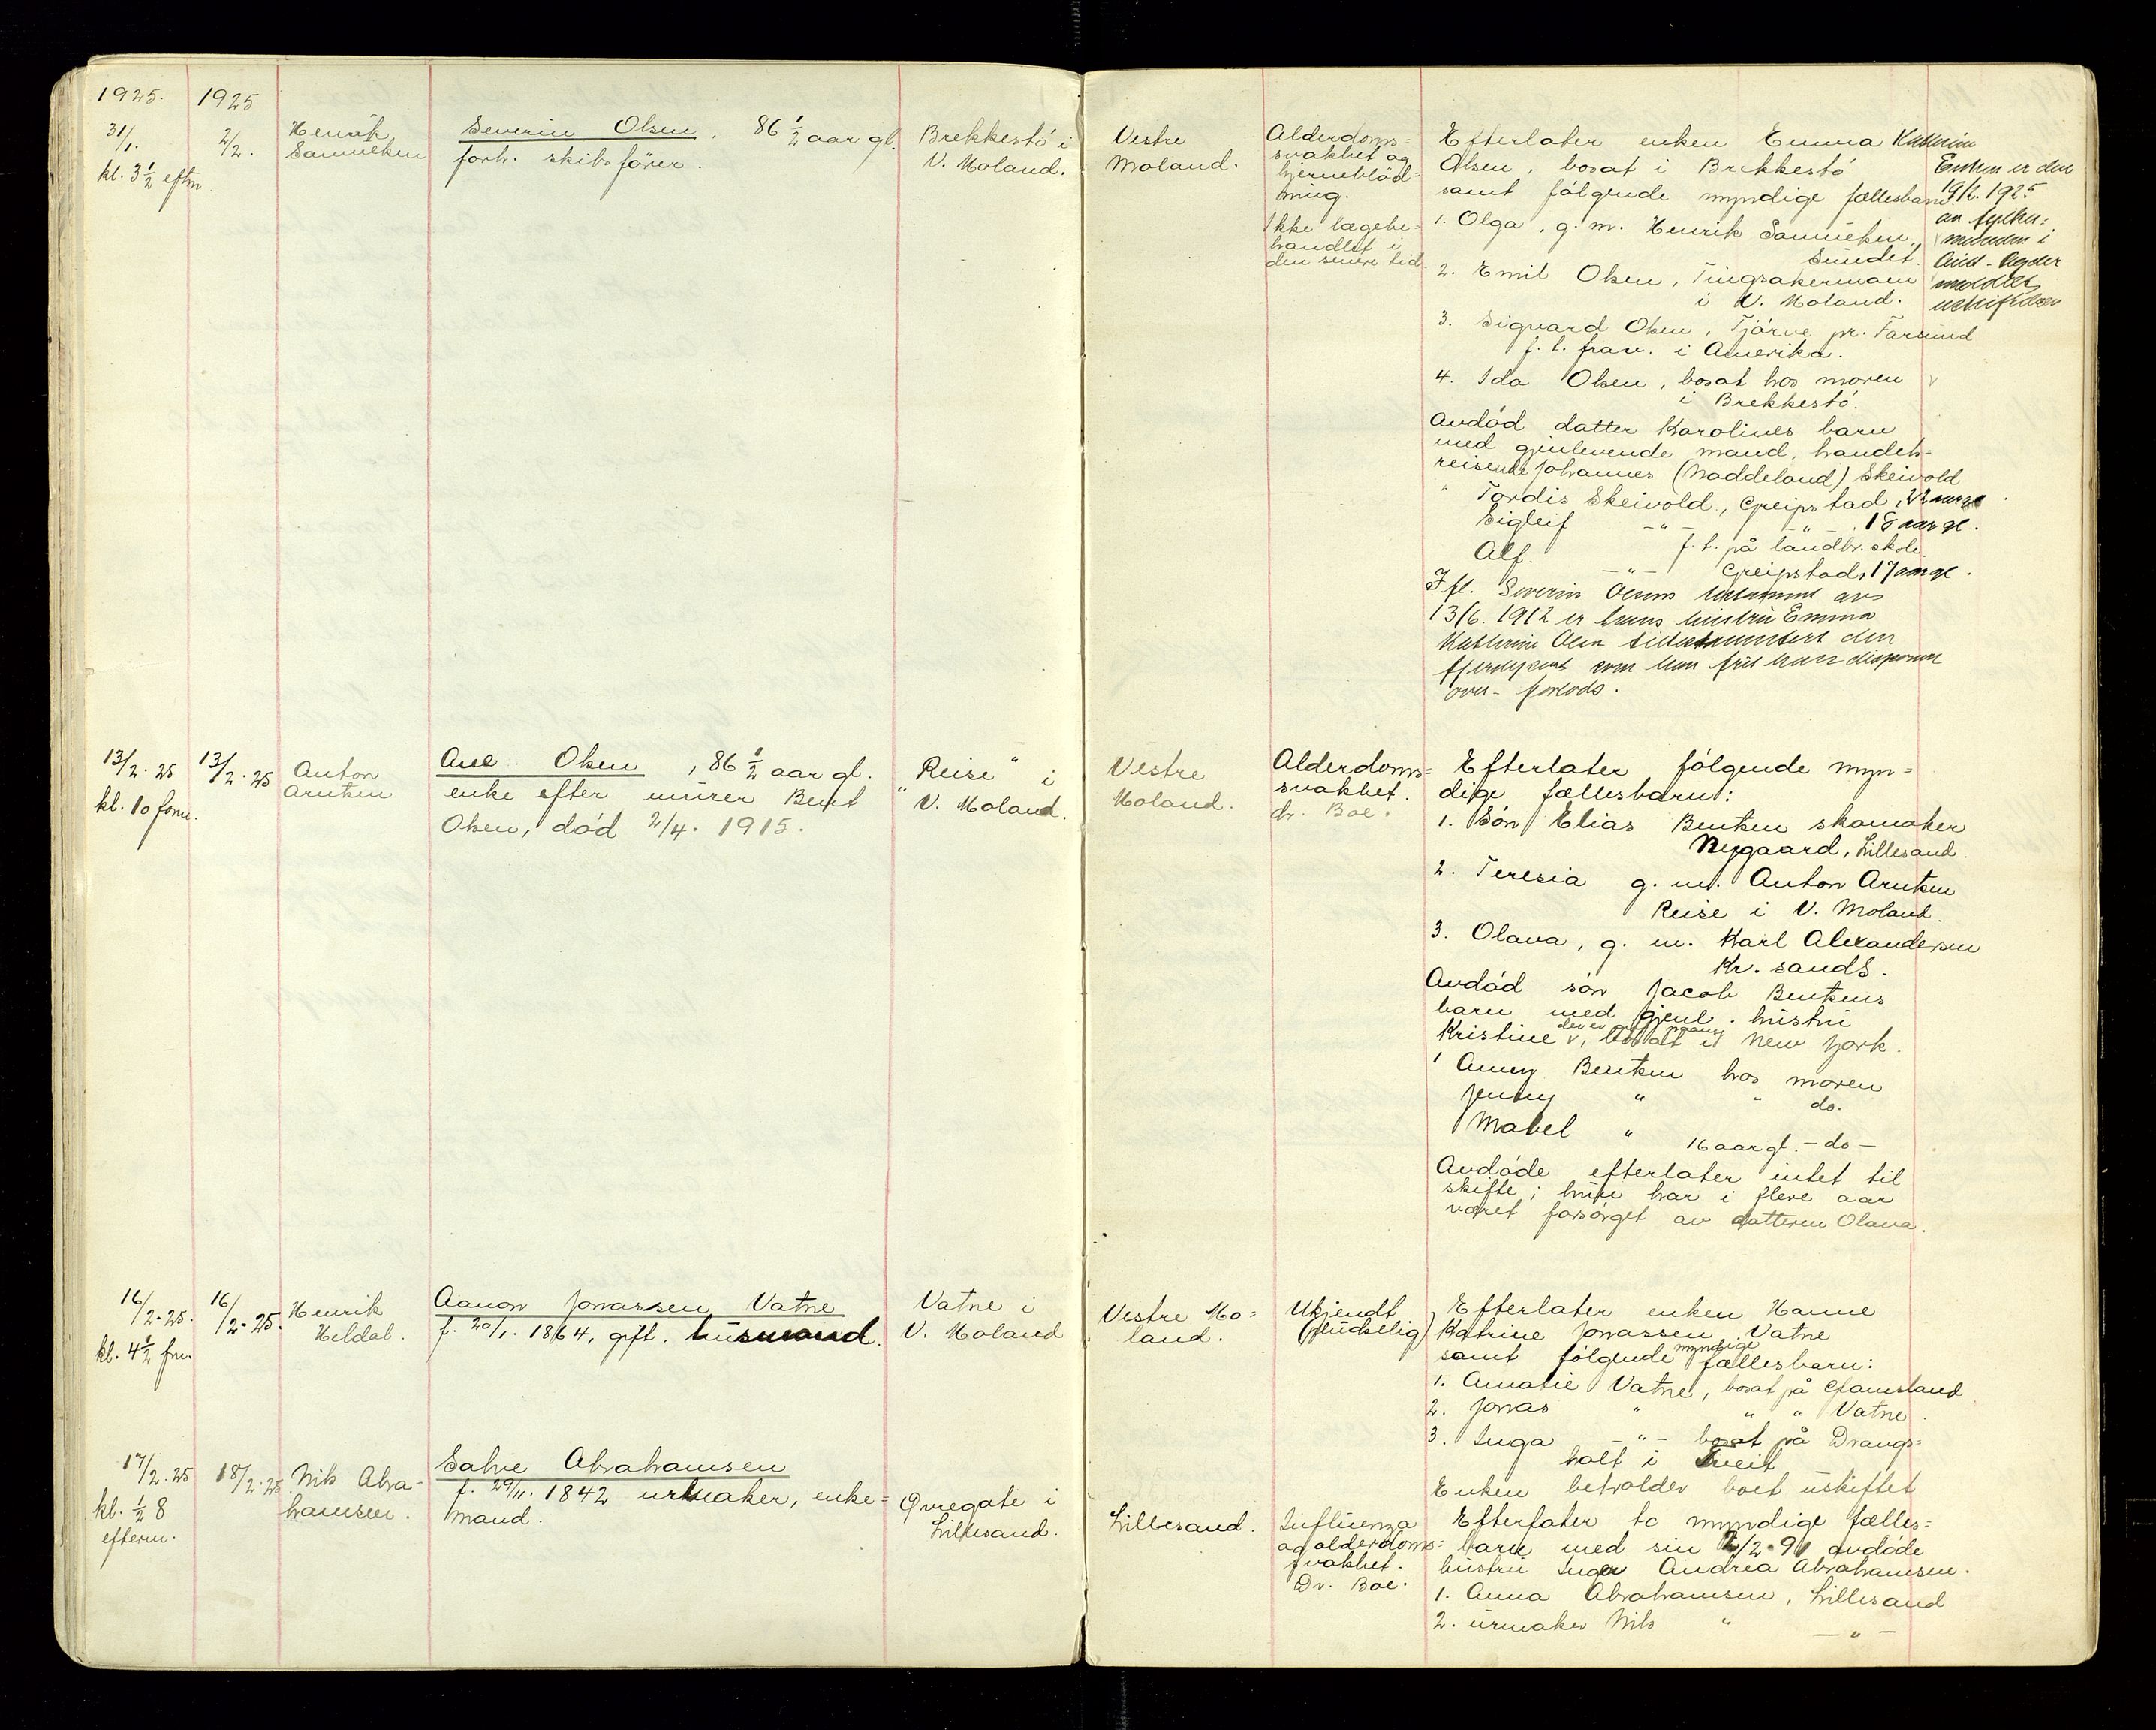 1925. 1925
31/1. 2/2. Henrik Severin Olsen, 86 1/2 aar gl. Brekkestö i Vestre Alderdoms= Efterlater enken Emma Kathrine
kl. 3 1/2 eftm. Samuelsen forh. skibsförer. V. Moland. Moland. svakhet og Olsen, bosat i Brekkestö
hjerneblöd= samt følgende myndige fællesbarn
ning.
Ikke lægebe= 1. Olga, g. m. Henrik Samuelsen,
handlet i Sundet.
den senere tid 2. Emil Olsen, Tingsakermoen
i V. Moland.
3. Sigvard Olsen, Tjörve pr. Farsund
f. t. frav. i Amerika.
4. Ida Olsen, bosat hos moren
i Brekkestö.
Enken er den
19/2. 1925
av fylkes=
manden i
Aust-Agder
meddelt
Avdöd datter Karolines barn
med gjenlevende mand, handels=
reisende Johannes (Naddeland) Skeivold
Tordis Skeivold, Greipstad, 22 aar gl.
Sigleif -"- -"- 18 aar gl.
Alf f. t. på landbr. skole.
-"- Greipstad, 17 aar gl.
Ifl. Severin Olsens testamente av
13/6. 1912 er hans hustru Emma
Kathrine Olsen den
som hun frit kan disponere
over - forlods.
13/2. 25 13/2. 25 Anton Ane Olsen, 86 1/2 aar gl. "Reise" i Vestre Alderdoms= Efterlater följende myn=
kl. 10 form. Arntsen enke efter murer Bent V. Moland. Moland. svakhet. dige fællesbarn:
Olsen, död 2/4. 1915. dr. Boe.
1. Sön Elias Bentsen skomaker
Nygaard, Lillesand.
2. Teresia g. m. Anton Arntsen
Reise i V. Moland.
3. Olava, g. m. Karl Alexandersen
Kr. sandS.
Avdöd sön Jacob Bentsens
barn med gjenl. hustru
Kristine, bosat i New York.
Anny Bentsen hos moren
Jenny " " do.
Mabel " 16 aar gl. - do -
Avdöde efterlater intet til
skifte; hun har i flere aar
været forsörget av datteren Olava.
16/2-25. 16/2-25. Henrik Aanon Jonassen Vatne Vatne i Vestre Mo= Ukjendt Efterlater enken Hanne
kl. 4 1/2 fm. Heldal. f. 20/1. 1864, gift. husmand. V. Moland land. (pludselig) Katrine Jonassen Vatne
samt fölgende myndige fællesbarn:
1. Amalie Vatne, bosat på Glamsland
2. Jonas " " " Vatne.
3. Inga -"- bosat på Drangs=
holt i Tveit
Enken beholder boet uskiftet
17/2. 25 18/2. 25 Nils Abra= Salve Abrahamsen
kl. 1/2 8 hamsen. f. 29/11. 1842 urmaker, enke= Övregate i Lillesand. Influenza Efterlater to myndige fælles=
efterm. mand. Lillesand. og alderdoms= barn med sin 2/2. 91 avdöde
svakhet. hustru Inger Andrea Abrahamsen.
Dr. Boe. 1. Anna Abrahamsen, Lillesand
2. urmaker Nils " -"-